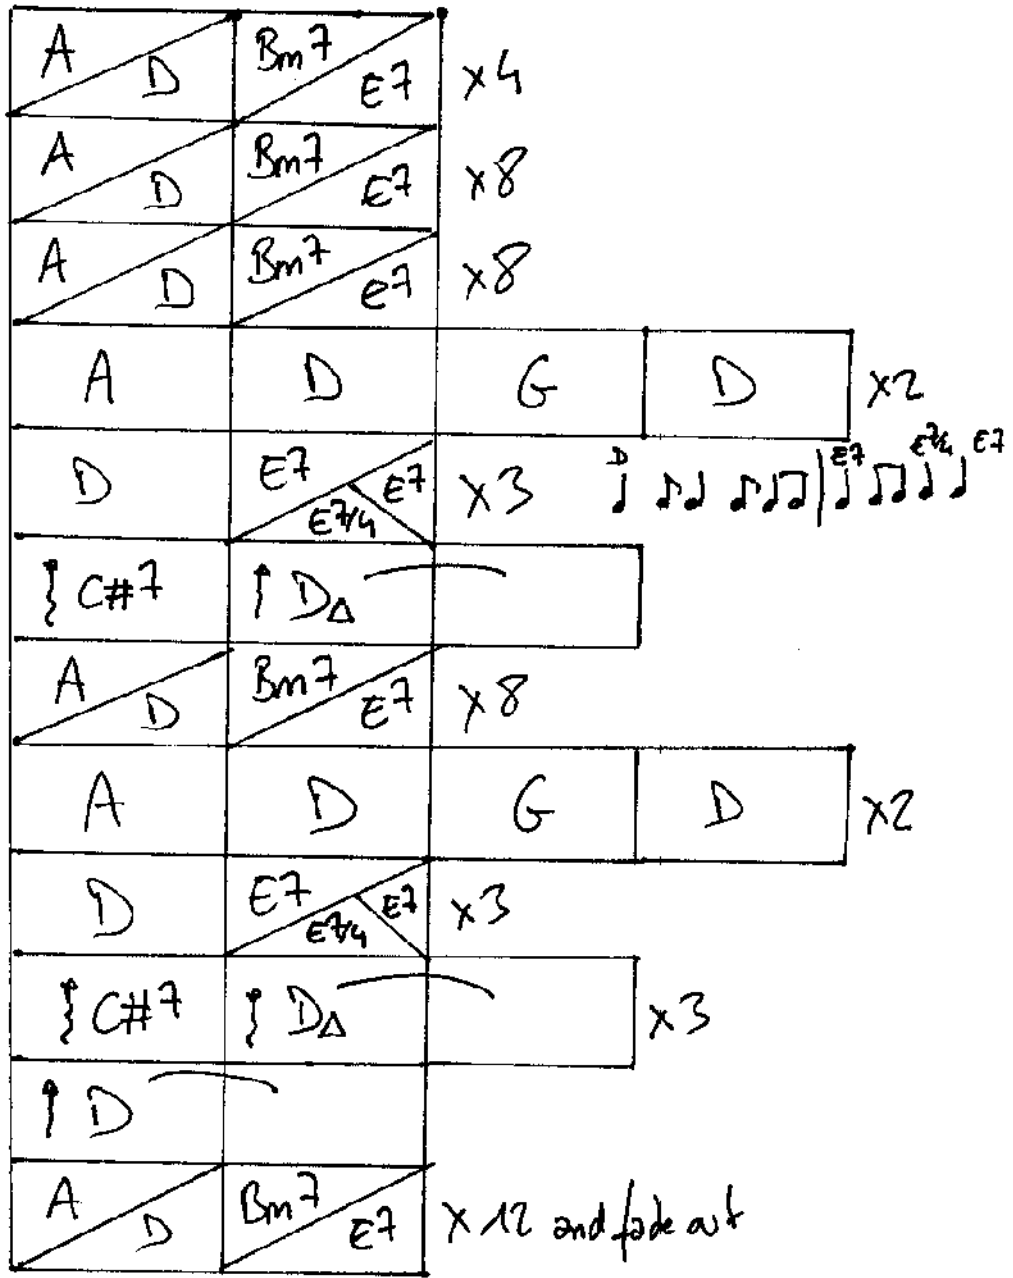 A D Bm7 E7 x4
A D Bm7 E7 x8
A D Bm7 E7 x8
A D G D x2
D E7 E7/4 E7 x3 D E7 E7/4 E7
C#7 D△
A D Bm7 E7 x8
A D G D x2
D E7 E7/4 E7 x3
C#7 D△ x3
D
A D Bm7 E7 x12 and fade out